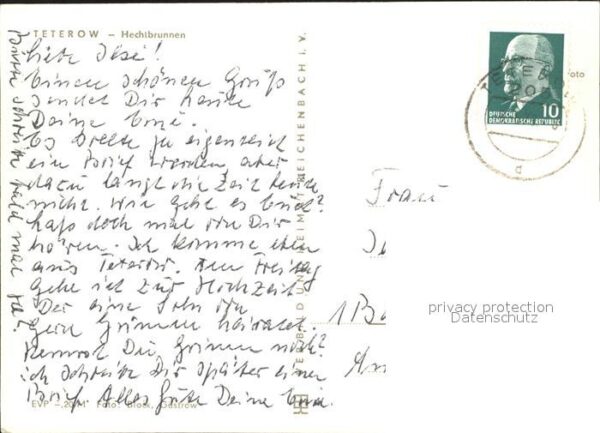 TETEROW – Hechtbrunnen
Liebe Ilse!
Einen schönen Gruß
sendet Dir heute
Deine Erni.
Es sollte ja eigentlich
ein Brief werden aber
dazu langt die Zeit heute
nicht. Wie geht es Euch?
Laß doch mal von Dir
hören. Ich komme eben
aus Teterow. Am Freitag
gehe ich zur Hochzeit
Der eine Sohn von
Grimm heiratet.
Kennst Du Grimm noch?
ich schreibe Dir später einen
Brief Alles Gute Deine Erni.
Bitte schreibe bald mal ja?
EVP –,20 M Foto: Block, Güstrow
VERLAG BILD UND HEIMAT REICHENBACH I. V.
Foto
10
DEUTSCHE
DEMOKRATISCHE REPUBLIK
TETEROW
20
a
Frau
1 Be
privacy protection
Datenschutz